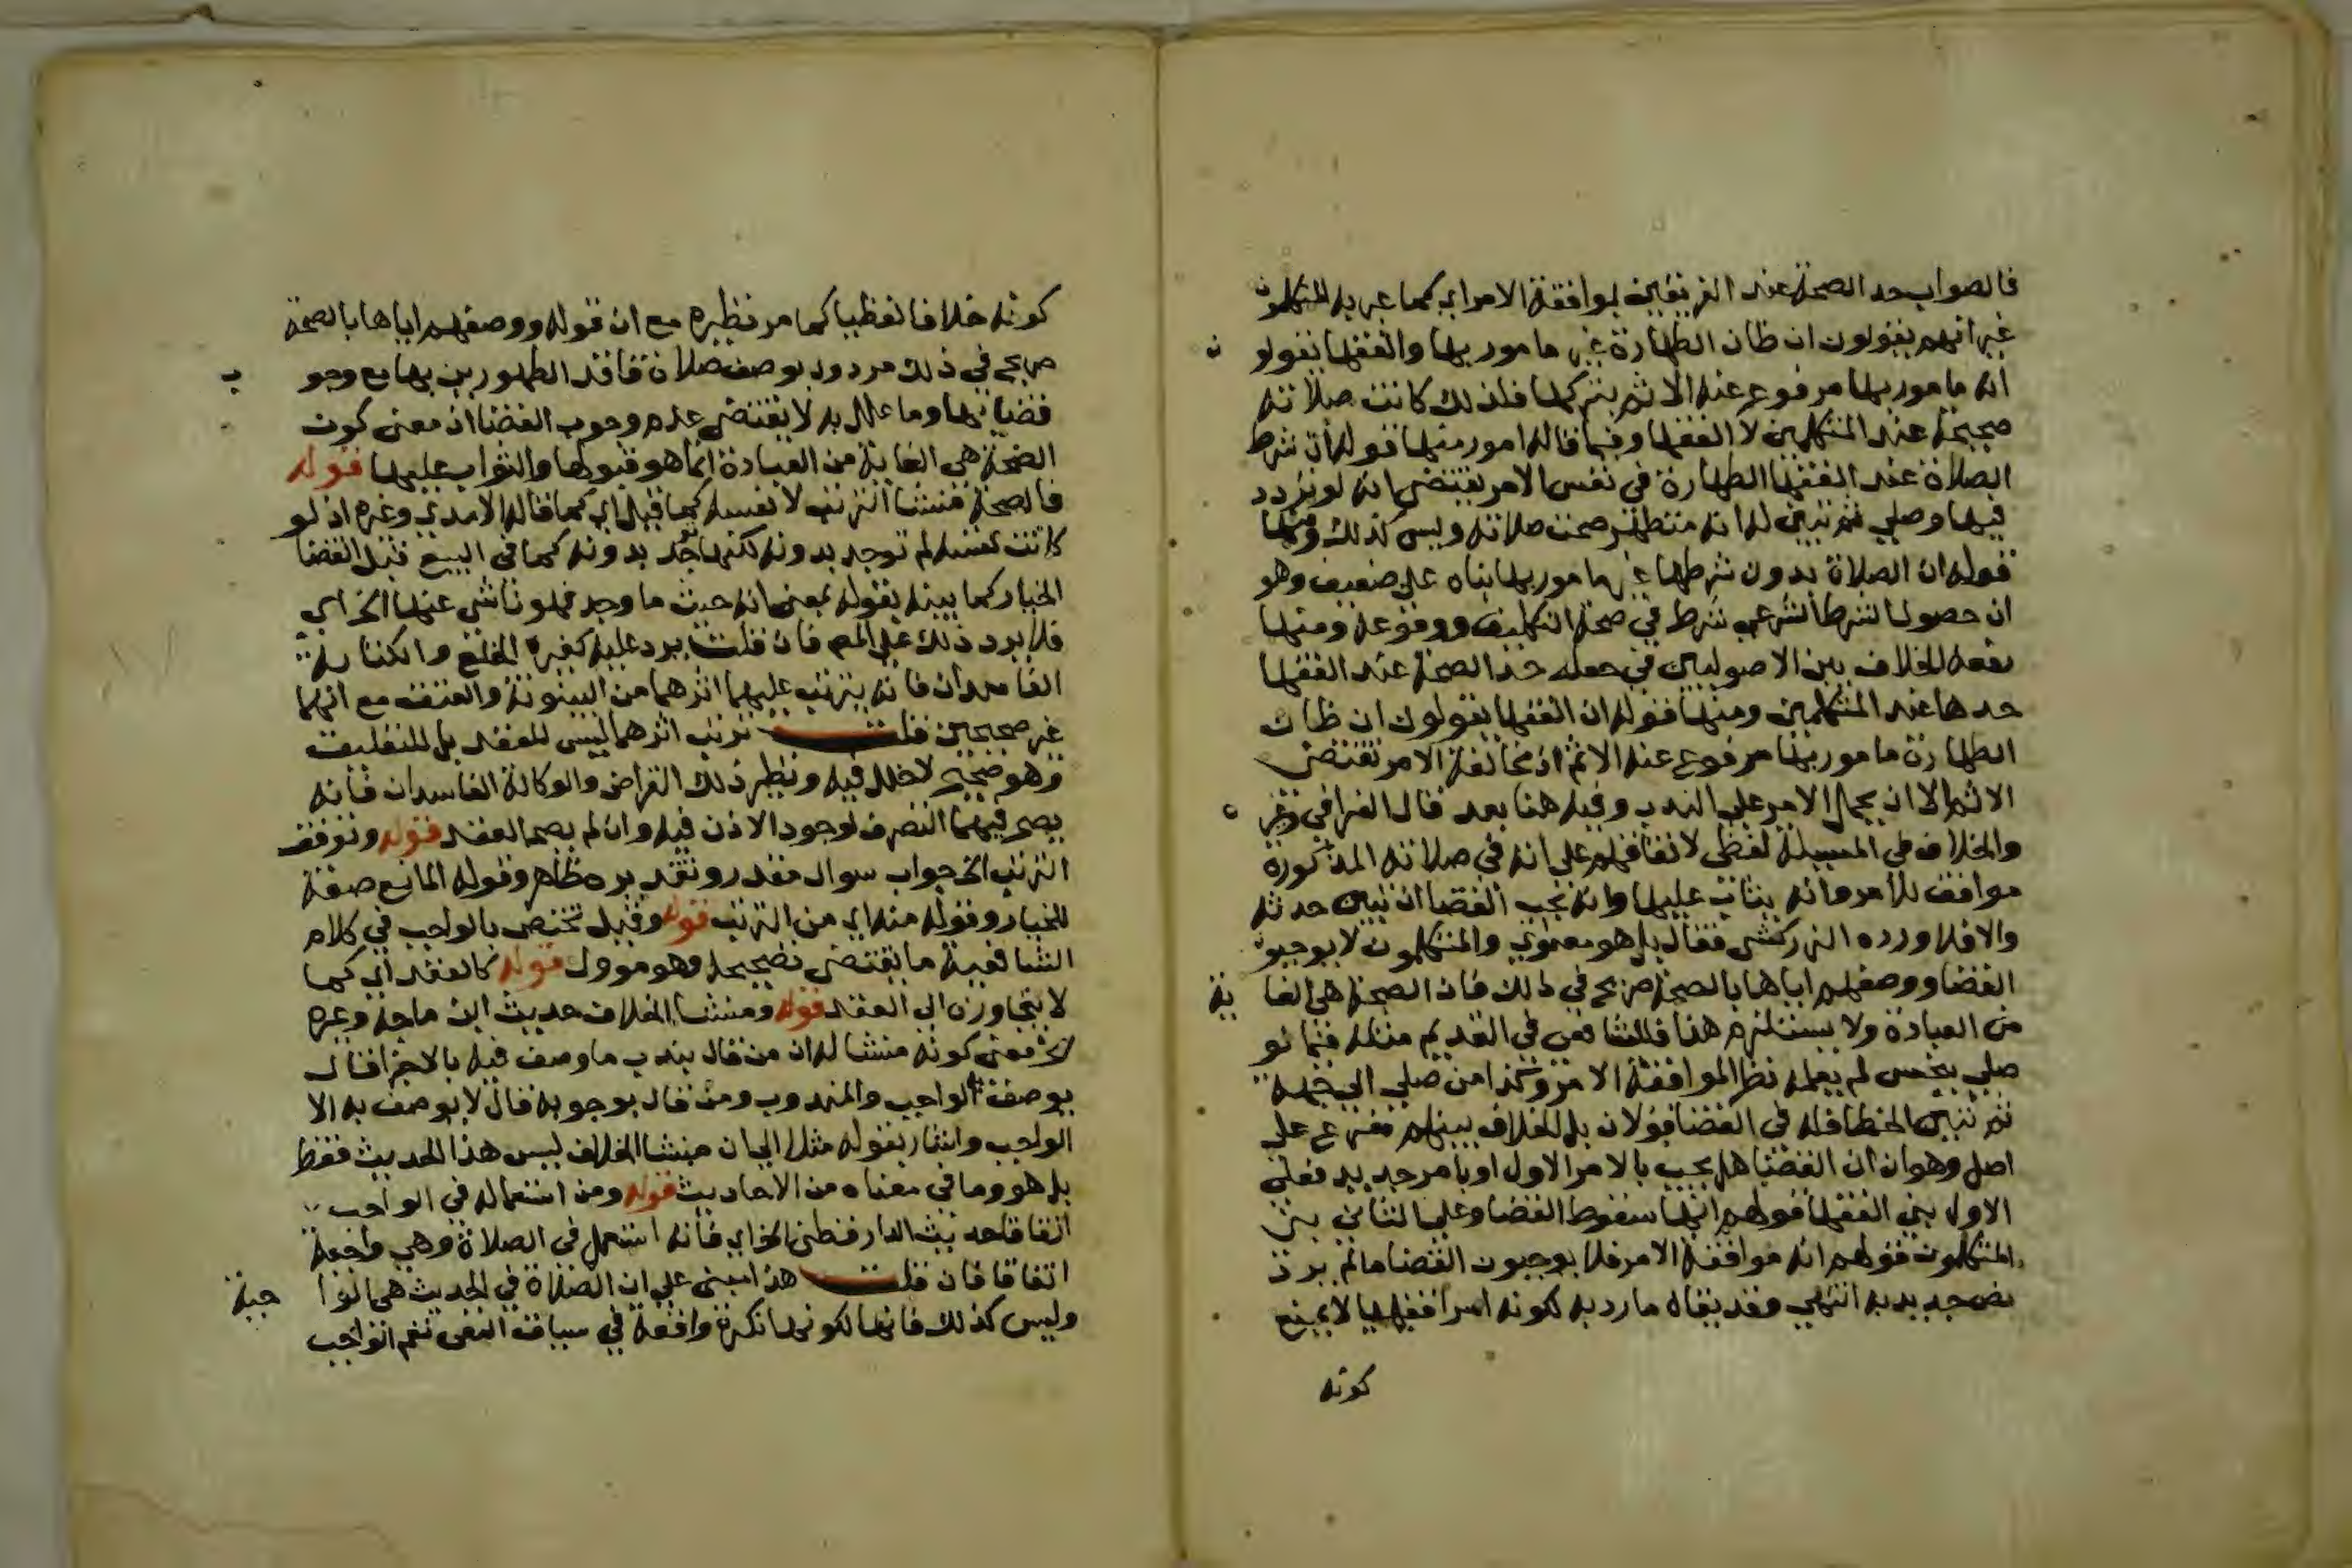 فالصواب حد الصحة عند الفريقين بموافقة الامر اي كما عبر به المتكلمون
غير انهم يقولون ان ظان الطهارة غير مامور بها والفقها يقولو ن
انه مامور بها مرفوع عنه الاثم بتركها فلذلك كانت صلاته
صحيحة عند المتكلمين لا الفقها وفيما قاله امور منها قوله ان شرط
الصلاة عند الفقها الطهارة في نفس الامر يقتضي انه لو تردد
فيها وصلي ثم تبين له انه متطهر صحت صلاته وليس كذلك ومنها
قوله ان الصلاة بدون شرطها غير مامور بها بناه على ضعيف وهو
ان حصول الشرط الشرعي شرط في صحة التكليف ووقوعه ومنها
نقعه للخلاف بين الاصوليين في جعله حد الصحة عند الفقها
حدها عند المتكلمين ومنها قوله ان الفقها يقولون ان ظان
الطهارة مامور بها مرفوع عنه الاثم اذ مخالفة الامر تقتضي
الاثم الا ان يحمل الامر على الندب وفيه هنا بعد قال القرافي وغير ه
والخلاف في المسيلة لفظي لاتفاقهم على انه في صلاته المذكورة
موافق للامر وانه يثاب عليها وانه يجب القضا ان تبين حدثه
والا فلا ورده الزركشي فقال بل هو معنوي والمتكلمون لا يوجبون
القضا ووصفهم اياها بالصحة صريح في ذلك فان الصحة هي الغا ية
من العبادة ولا يستلزم هذا فللشافعي في القديم مثله فيما لو
صلي بنجس لم يعلمه نظرا لموافقة الامر وكذا من صلي الي جهة
ثم تبين الخطا فله في القضا قولان بل الخلاف بينهم مفرع على
اصل وهو ان القضا هل يجب بالامر الاول او بامر جديد فعلى
الاول بني الفقها قولهم انها سقوط القضا وعلى الثاني بني
المتكلمون قولهم انه موافقة الامر فلا يوجبون القضا ما لم يرد
نص جديد به انتهي وقد يقال ما رد به لكونه امرا فقهيا لا يمنع
كونه
كونه خلافا لفظيا كما مر نظيره مع ان قوله ووصفهم اياها بالصحة
صريح في ذلك مردود بوصف صلاة فاقد الطهورين بها مع وجو ب
قضايها وما علل به لا يقتضي عدم وجوب القضا اذ معنى كون
الصحة هي الغاية من العبادة انما هو قبولها والثواب عليها قوله
فالصحة منشا الترتب لا نفسه كما قيل اي كما قاله الامدي وغيره اذ لو
كانت نفسه لم توجد بدونه لكنها توجد بدونه كما في البيع قبل انقضا
الخيار كما بينه بقوله بمعنى انه حيث ما وجد فهو ناشي عنها الخ اي
فلا يرد ذلك على المص فان قلت يرد عليه كغيره الخلع والكتابة
الفاسدان فانه يترتب عليهما اثرهما من البينونة والعتق مع انهما
غير صحيحين قلت ترتب اثرهما ليس للعقد بل للتعليق
وهو صحيح لا خلل فيه ونظير ذلك القراض والوكالة الفاسدان فانه
يصح فيهما التصرف لوجود الاذن فيه وان لم يصح العقد قوله وتوقف
الترتب الخ جواب سوال مقدر وتقديره ظاهر وقوله المانع صفة
للخيار وقوله منه اي من الترتب قوله وقيل تختص بالواجب في كلام
الشافعية ما يقتضي تصحيحه وهو موول قوله كالعقد اي كما
لا يتجاوزن الي العقد قوله ومنشا الخلاف حديث ابن ماجة وغيره
الخ معنى كونه منشا له ان من قال بندب ما وصف فيه بالاجزا قال
يوصف به الواجب والمندوب ومن قال بوجوبه قال لا يوصف به الا
الواجب واشار بقوله مثلا الي ان منشا الخلاف ليس هذا الحديث فقط
بل هو وما في معناه من الاحاديث قوله ومن استعماله في الواجب
اتفاقا حديث الدارقطني الخ اي فانه استعمل في الصلاة وهي واجبة
اتفاقا فان قلت هذا مبني على ان الصلاة في الحديث هي الوا جبة
وليس كذلك فانها لكونها نكرة واقعة في سياق النفي تعم الواجب